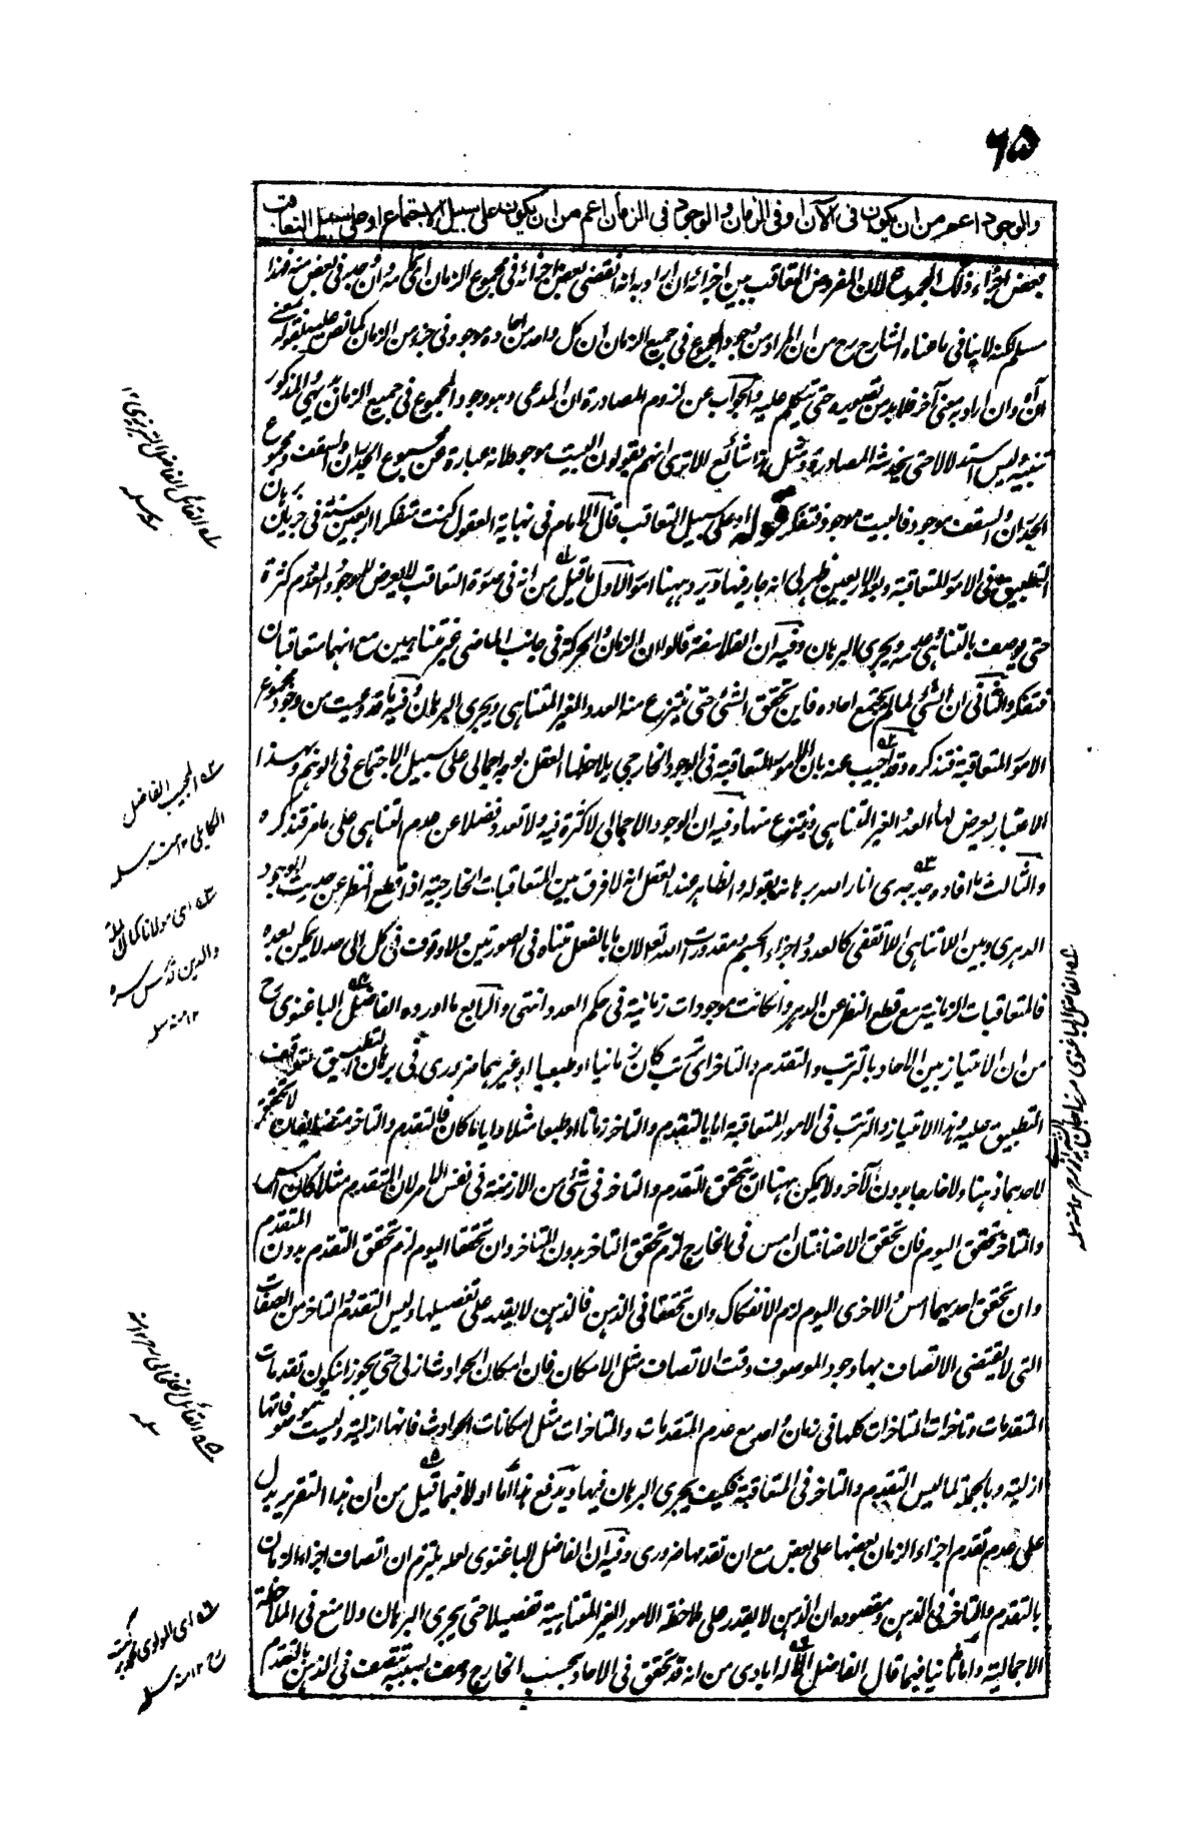 ٦٥
والوجود اعم من ان يكون فى الآن او فى الزمان والوجود فى الزمان اعم من ان يكون على سبيل الاجتماع او على سبيل التعاقب
بعض اجزاء ذلك المجموع لان المفروض التعاقب بين اجزائه ان اراد به انه انقضى بعض اجزائه فى مجموع الزمان اى كله وان وجد فى بعض منه فهذا
مسلم لكنه لا ينافى ما عناه الشارح رح من ان المراد من وجود المجموع فى جميع الزمان ان كل واحد من احاده موجود فى جزء من الزمان كما نص عليه بقوله يعنى
انه وان اراد به معنى آخر فلا بد من تصويره حتى يتكلم عليه والجواب عن لزوم المصادرة ان المدعى وهو وجود المجموع فى جميع الزمان بديهى والمذكور
تنبيه وليس استدلالا حتى يخدشه المصادرة ومثل هذا شائع الا ترى انهم يقولون البيت موجود لانه عبارة عن مجموع الجدران والسقف ومجموع
الجدران والسقف موجود فالبيت موجود فتفكر قوله او على سبيل التعاقب قال الامام فى نهاية العقول كنت متفكرا اربعين سنة فى جريان برهان
التطبيق فى الامور المتعاقبة وبعد الاربعين ظهر لى انه جار فيها ويرد ههنا امور الاول ما قيل من انه فى صورة التعاقب لا يعرض للوجود والعدم كثرة
حتى يوصف بالتناهى وعدمه ويجرى البرهان وفيه ان الفلاسفة قالوا ان الزمان والحركة فى جانب الماضى غير متناهيين مع انهما متعاقبان
فتفكر والثانى ان الشئ لما لم يجتمع احاده فاين تحقق الشئ حتى ينتزع منه العدد الغير المتناهى ويجرى البرهان وفيه ما قد وعيت من وجود مجموع
الامور المتعاقبة فتذكره وقد اجيب عنه بان الامور المتعاقبة فى الوجود الخارجى يلاحظها العقل بوجه اجمالى على سبيل الاجتماع فى الوهم وبهذا
الاعتبار يعرض لها العدد الغير المتناهى وينتزع منها وفيه ان الوجود الاجمالى لا كثرة فيه ولا تعدد فضلا عن عدم التناهى على ما مر فتذكره
والثالث ما افاده جد جدى انار الله برهانه بقوله والظاهر عند العقل انه لا فرق بين المتعاقبات الخارجية اذا قطع النظر عن حديث الوجود
الدهرى وبين اللاتناهى اللاتقفى كالعدد واجزاء الجسم ومقدورات الله تعالى لان ما بالفعل متناه فى الصورتين ولا وقوف فى كل الى حد لا يمكن بعده
فالمتعاقبات الزمانية مع قطع النظر عن الدهر وان كانت موجودات زمانية فى حكم العدد انتهى والرابع ما اورده الفاضل الباغنوى رح
من ان الامتياز بين الاحاد بالترتب والتقدم والتاخر اى ترتب كان زمانيا او طبعيا او غيرهما ضرورى فى برهان التطبيق لتوقف
التطبيق عليه وهذا الامتياز والترتب فى الامور المتعاقبة اما بالتقدم والتاخر زمانا او طبعا مثلا وايا ما كان فالتقدم والتاخر متضايفان لا تحقق
لاحدهما ذهنا ولا خارجا بدون الآخر ولا يمكن ههنا ان يتحقق التقدم والتاخر فى شئ من الازمنة فى نفس الامر لان المتقدم مثلا كان امس
والمتاخر تحقق اليوم فان تحقق الاضافتان امس فى الخارج لزم تحقق التاخر بدون المتاخر وان تحققا اليوم لزم تحقق التقدم بدون المتقدم
وان تحقق احدهما امس والاخرى اليوم لزم الانفكاك وان تحققا فى الذهن فالذهن لا يقدر على تفصيلها وليس التقدم والتاخر من الصفات
التى لا يقتضى الاتصاف بها وجود الموصوف وقت الاتصاف مثل الامكان فان امكان الحوادث ازلى حتى يجوز ان يكون تقدمات
المتقدمات وتاخرات المتاخرات كلها فى زمان واحد مع عدم المتقدمات والمتاخرات مثل امكانات الحوادث فانها ازلية وليست موصوفاتها
ازلية وبالجملة لما ليس التقدم والتاخر فى المتعاقبة فكيف يجرى البرهان فيها ويدفع هذا اما اولا فبما قيل من ان هذا التقرير يدل
على عدم تقدم اجزاء الزمان بعضها على بعض مع ان تقدمها ضرورى وفيه ان الفاضل الباغنوى لعله يلتزم ان اتصاف اجزاء الزمان
بالتقدم والتاخر فى الذهن ومقصوده ان الذهن لا يقدر على ملاحظة الامور الغير المتناهية تفصيلا حتى يجرى البرهان ولا منع فى الملاحظة
الاجمالية واما ثانيا فبما قال الفاضل الاله ابادى من انه قد تحقق فى الاحاد بحسب الخارج وصف بسببه تتصف فى الذهن بالتقدم
له القائل الفاضل التبريزى ١٢ منه سلمه
المجيب الفاضل
الكابلى ١٢ منه سلمه
اى مولانا كمال الملة
والدين قدس سره
١٢ منه سلمه
الفاضل الباغنوى مرزا جان
القائل الخلخالى ١٢ منه
سلمه
اى المولوى محمد بركت
١٢ منه سلمه